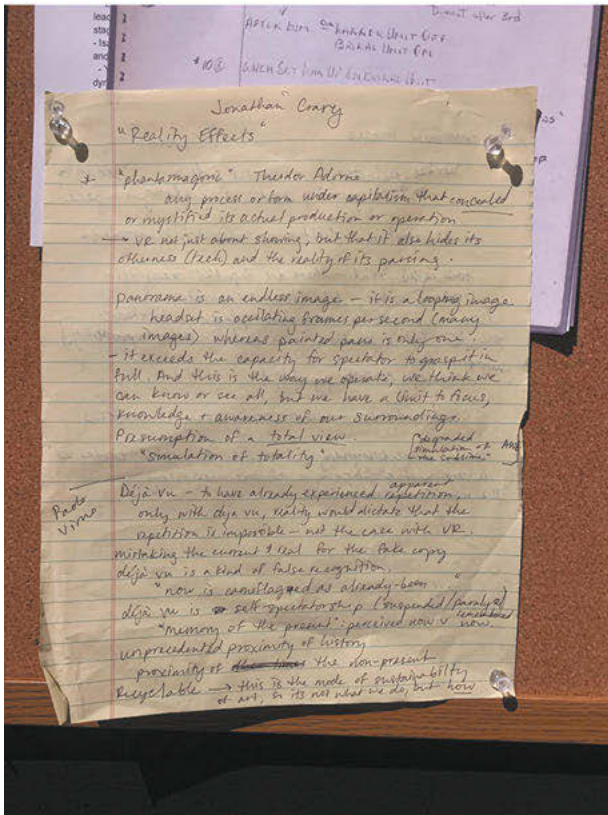 leac
stag
- Isa
and
dyn
Dimout after 3rd
AFTER KIM
BRIKAL UNIT ON
*10
Jonathan Crary
"Reality Effects"
* "phantasmagoric" Theodor Adorno
any process or form under capitalism that concealed
or mystified its actual production or operation
→ VR not just about showing, but that it also hides its
otherness (tech) and the reality of its parsing.
panorama is an endless image - it is a looping image.
headset is oscilating frames per second (many
images) whereas painted pano is only one.
- it exceeds the capacity for spectator to grasp it in
full. And this is the way we operate, we think we
can know or see all, but we have a limit to focus,
knowledge + awareness of our surroundings.
Presumption of a total view.
"simulation of totality"
"degraded
simulation of
the sublime"
Paolo
Virno
Déjà vu - to have already experienced apparent repetition,
only with deja vu, reality would dictate that the
repetition is impossible - not the case with VR.
mistaking the current & real for the fake copy
déjà vu is a kind of false recognition.
"now is camouflaged as already-been..."
déjà vu is self-spectatorship (suspended/paralyzed)
"memory of the present": perceived now v remembered now.
unprecedented proximity of history
proximity of the non-present
Recyclable → this is the mode of sustainability
of art, so its not what we do, but how